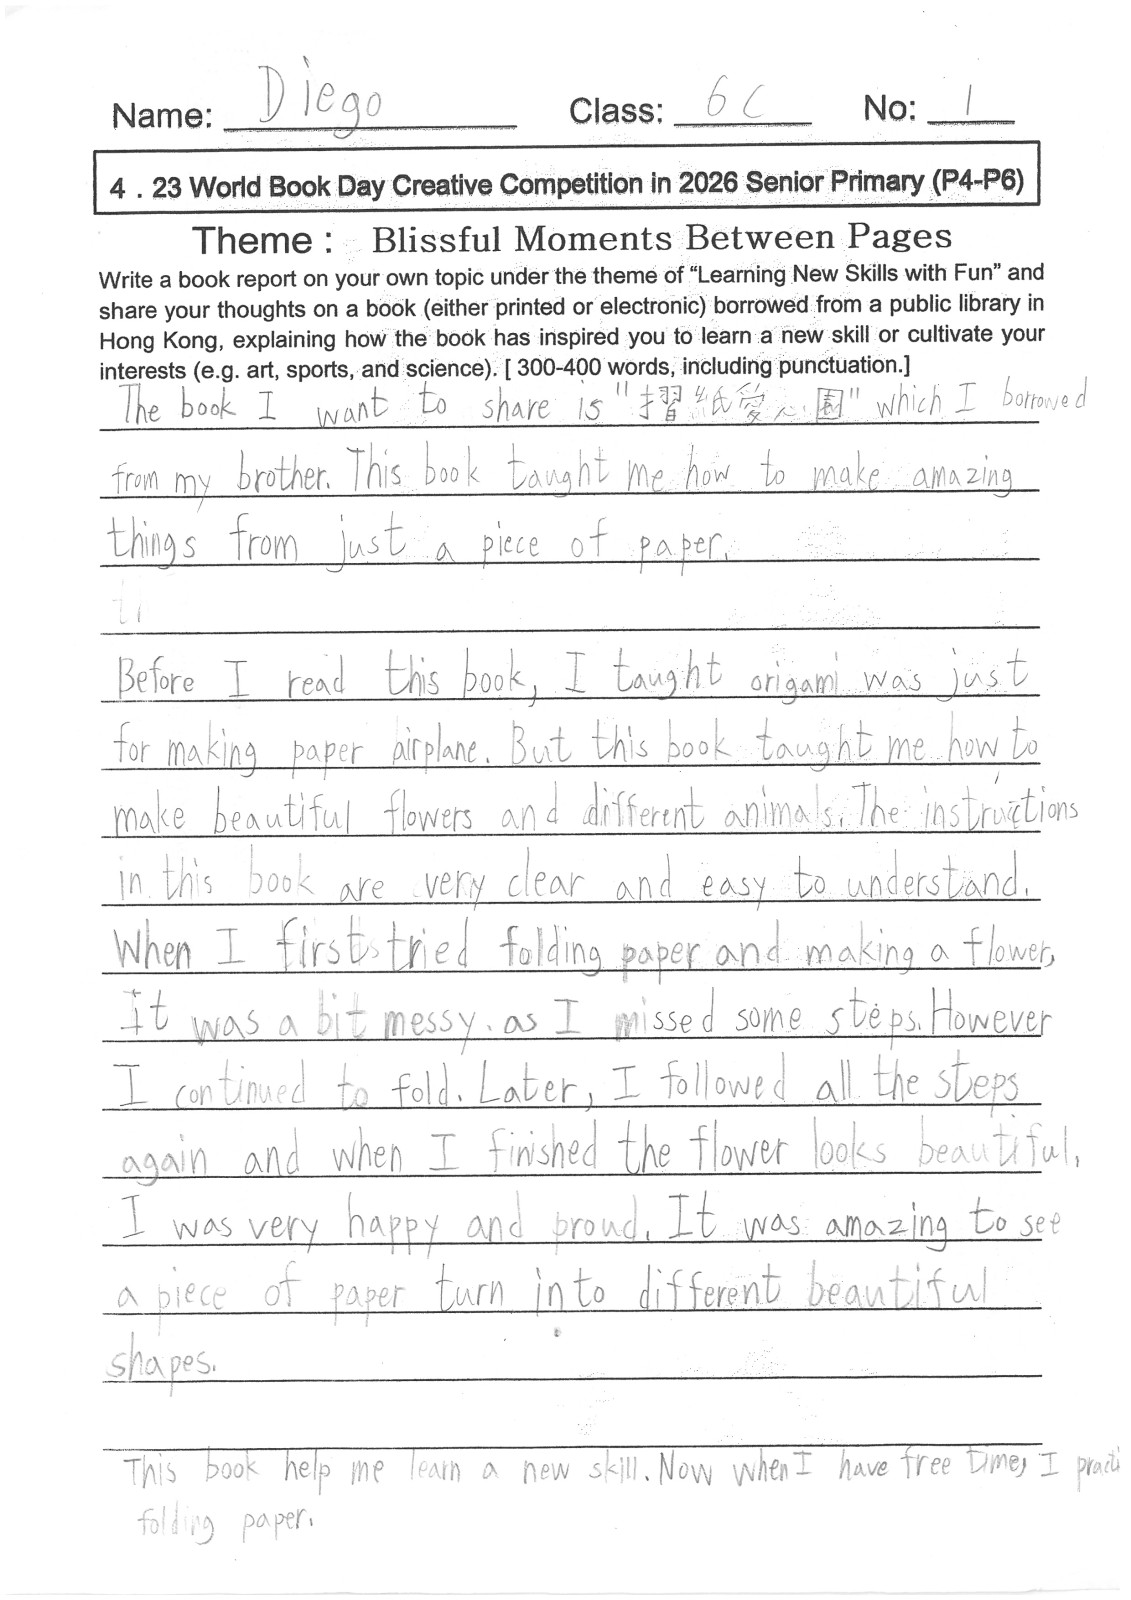 Name: Diego Class: 6C No: 1
4 . 23 World Book Day Creative Competition in 2026 Senior Primary (P4-P6)
Theme : Blissful Moments Between Pages
Write a book report on your own topic under the theme of “Learning New Skills with Fun” and
share your thoughts on a book (either printed or electronic) borrowed from a public library in
Hong Kong, explaining how the book has inspired you to learn a new skill or cultivate your
interests (e.g. art, sports, and science). [ 300-400 words, including punctuation.]
The book I want to share is "摺紙愛心園" which I borrowed
from my brother. This book taught me how to make amazing
things from just a piece of paper.
Before I read this book, I taught origami was just
for making paper airplane. But this book taught me how to
make beautiful flowers and different animals. The instructions
in this book are very clear and easy to understand.
When I first tried folding paper and making a flower,
It was a bit messy. as I missed some steps. However
I continued to fold. Later, I followed all the steps
again and when I finished the flower looks beautiful,
I was very happy and proud. It was amazing to see
a piece of paper turn into different beautiful
shapes.
This book help me learn a new skill. Now when I have free time, I practi
folding paper.